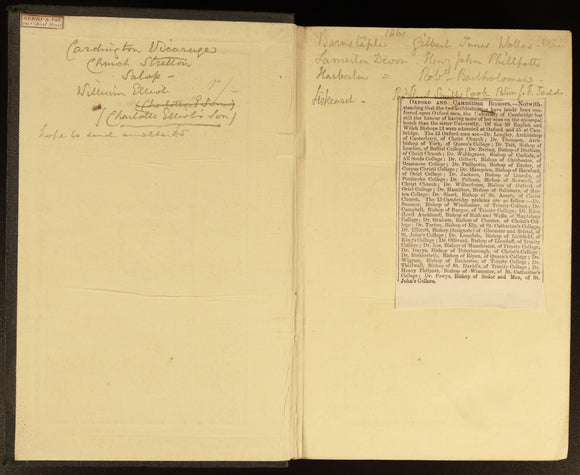 Cardington Vicarage
Church Stretton
Salop -
William Elliot
(Charlotte E Son)
(Charlotte Elliot's Son)
hope to send another
1861
Barnstaple Gilbert Innes Wallas
Lamerton Devon Henry John Phillpotts
Harberton = Robt Bartholomew
Liskeard - Cook
OXFORD AND CAMBRIDGE BISHOPS.—Notwith-
standing that the two Archbishoprics have lately been con-
ferred upon Oxford men, the University of Cambridge has
still the honour of having more of her sons on the episcopal
bench than the sister University. Of the 28 English and
Welsh Bishops 13 were educated at Oxford and 15 at Cam-
bridge. The 13 Oxford men are—Dr. Longley, Archbishop
of Canterbury, of Christ Church; Dr. Thomson, Arch-
bishop of York, of Queen's College; Dr. Tait, Bishop of
London, of Balliol College; Dr. Baring, Bishop of Durham,
of Christ Church; Dr. Waldegrave, Bishop of Carlisle, of
All Souls College; Dr. Gilbert, Bishop of Chichester, of
Brasenose College; Dr. Phillpotts, Bishop of Exeter, of
Corpus Christi College; Dr. Hampden, Bishop of Hereford,
of Oriel College; Dr. Jackson, Bishop of Lincoln, of
Pembroke College; Dr. Pelham, Bishop of Norwich, of
Christ Church; Dr. Wilberforce, Bishop of Oxford, of
Oriel College; Dr. Hamilton, Bishop of Salisbury, of Mer-
ton College; Dr. Short, Bishop of St. Asaph, of Christ
Church. The 15 Cambridge prelates are as follow:—Dr.
Sumner, Bishop of Winchester, of Trinity College; Dr.
Campbell, Bishop of Bangor, of Trinity College; Dr. Eden
(Lord Auckland), Bishop of Bath and Wells, of Magdalen
College; Dr. Graham, Bishop of Chester, of Christ's Col-
lege; Dr. Turton, Bishop of Ely, of St. Catharine's College;
Dr. Ellicott, Bishop (designate) of Gloucester and Bristol, of
St. John's College; Dr. Lonsdale, Bishop of Lichfield, of
King's College; Dr. Ollivant, Bishop of Llandaff, of Trinity
College; Dr. Lee, Bishop of Manchester, of Trinity College;
Dr. Jeune, Bishop of Peterborough, of Christ's College;
Dr. Bickersteth, Bishop of Ripon, of Queen's College; Dr.
Wigram, Bishop of Rochester, of Trinity College; Dr.
Thirlwall, Bishop of St. David's, of Trinity College; Dr.
Henry Philpott, Bishop of Worcester, of St. Catharine's
College; Dr. Powys, Bishop of Sodor and Man, of St.
John's College.